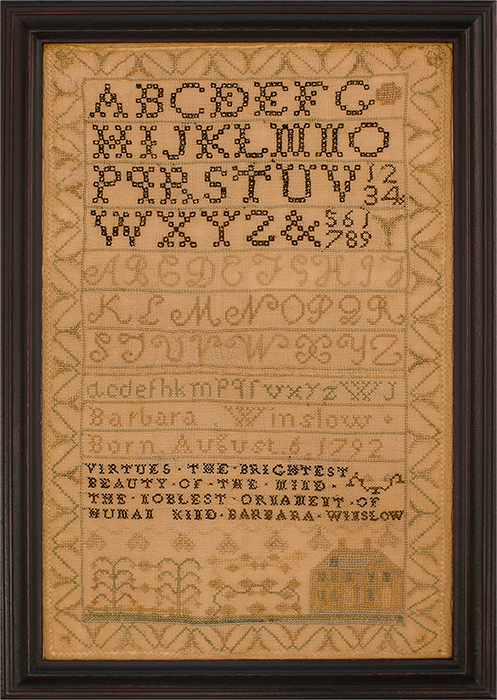 A B C D E F G
H I J K L M N O
P Q R S T U V 1 2
3 4
W X Y Z & 5 6
7 8 9
A B C D E F G H I J
K L M N O P Q R
S T U V W X Y Z
a c d e f h k m p q ſ v x y z W J
Barbara Winslow
Born August 6 1792
VIRTUES · THE BRIGHTEST
BEAUTY · OF · THE · MIND ·
THE · NOBLEST · ORNAMENT · OF
HUMAN KIND · BARBARA · WINSLOW